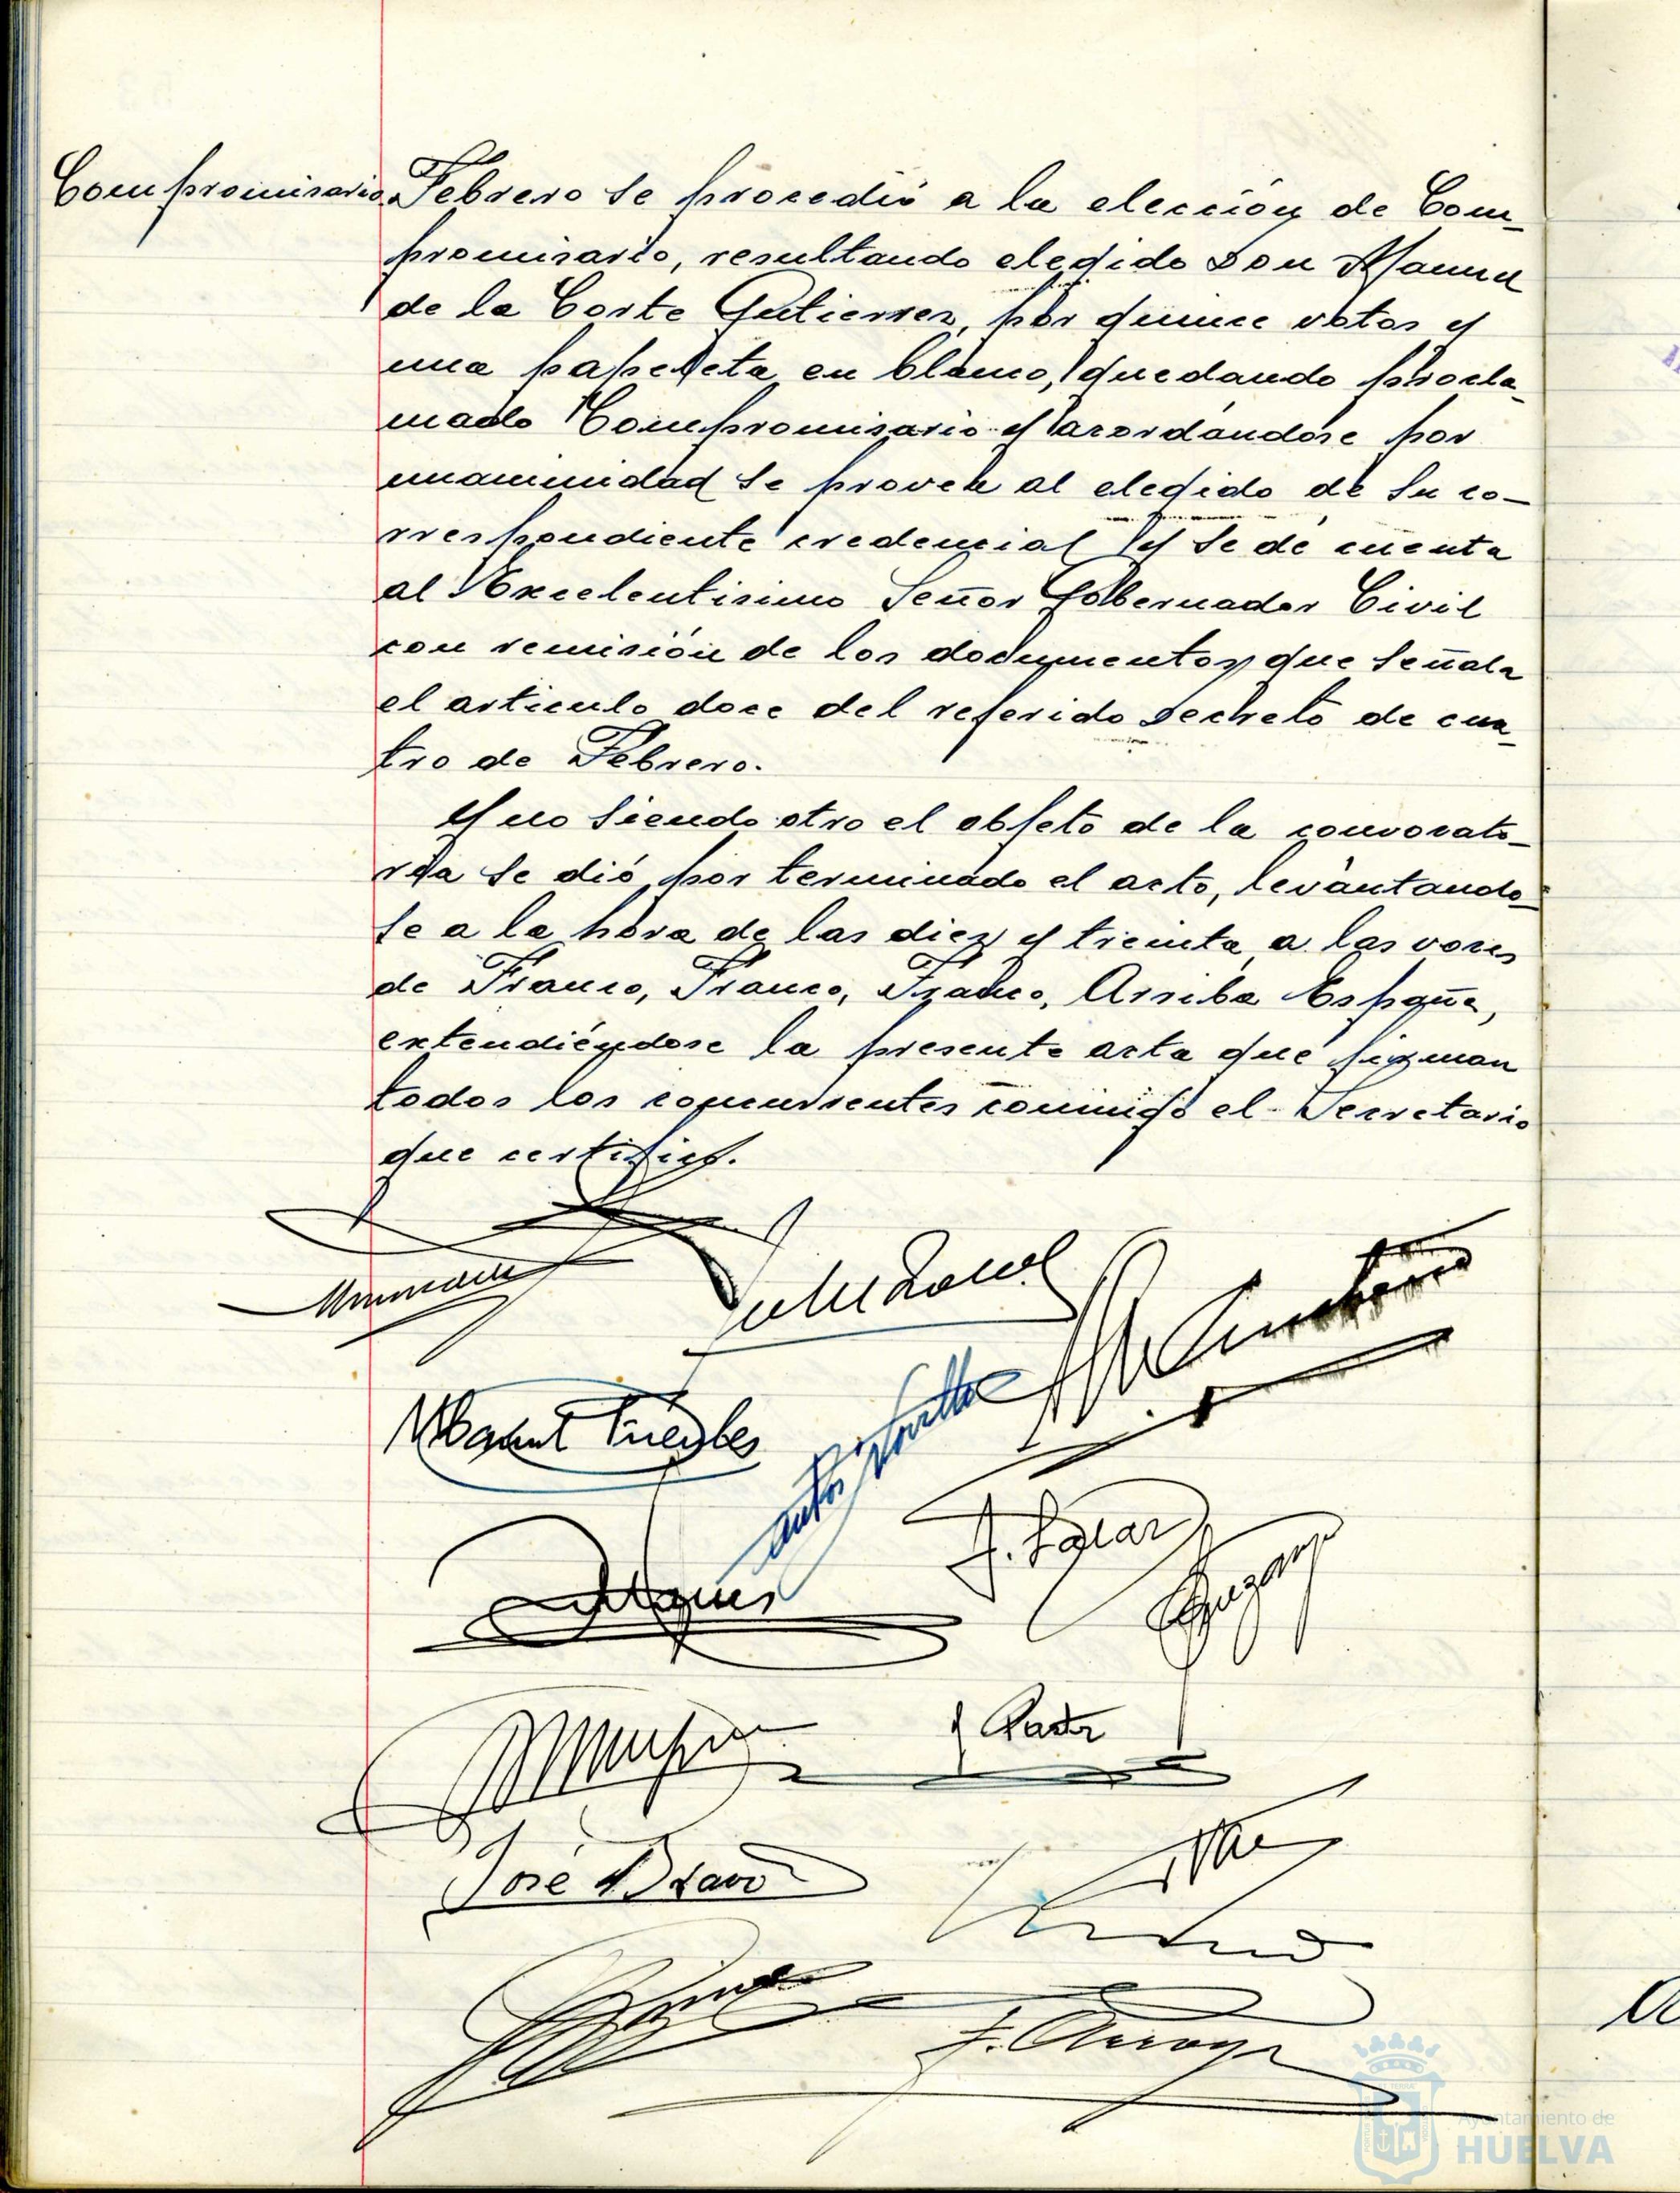 Compromisario. Febrero se procedió a la elección de Com-
promisario, resultando elegido Don Manuel
de la Corte Gutierrez, por quince votos y
una papeleta en blanco, quedando procla-
mado Compromisario y acordándose por
unanimidad se provea al elegido de su co-
rrespondiente credencial y se dé cuenta
al Excelentisimo Señor Gobernador Civil
con remisión de los documentos que señala
el articulo doce del referido Decreto de cua-
tro de Febrero.
Y no siendo otro el objeto de la convocato-
ria se dió por terminado el acto, levantando-
se a la hora de las diez y treinta a las voces
de Franco, Franco, Franco, Arriba España,
extendiéndose la presente acta que firman
todos los concurrentes conmigo el Secretario
que certifico.
José Bravo
Ayuntamiento de
HUELVA